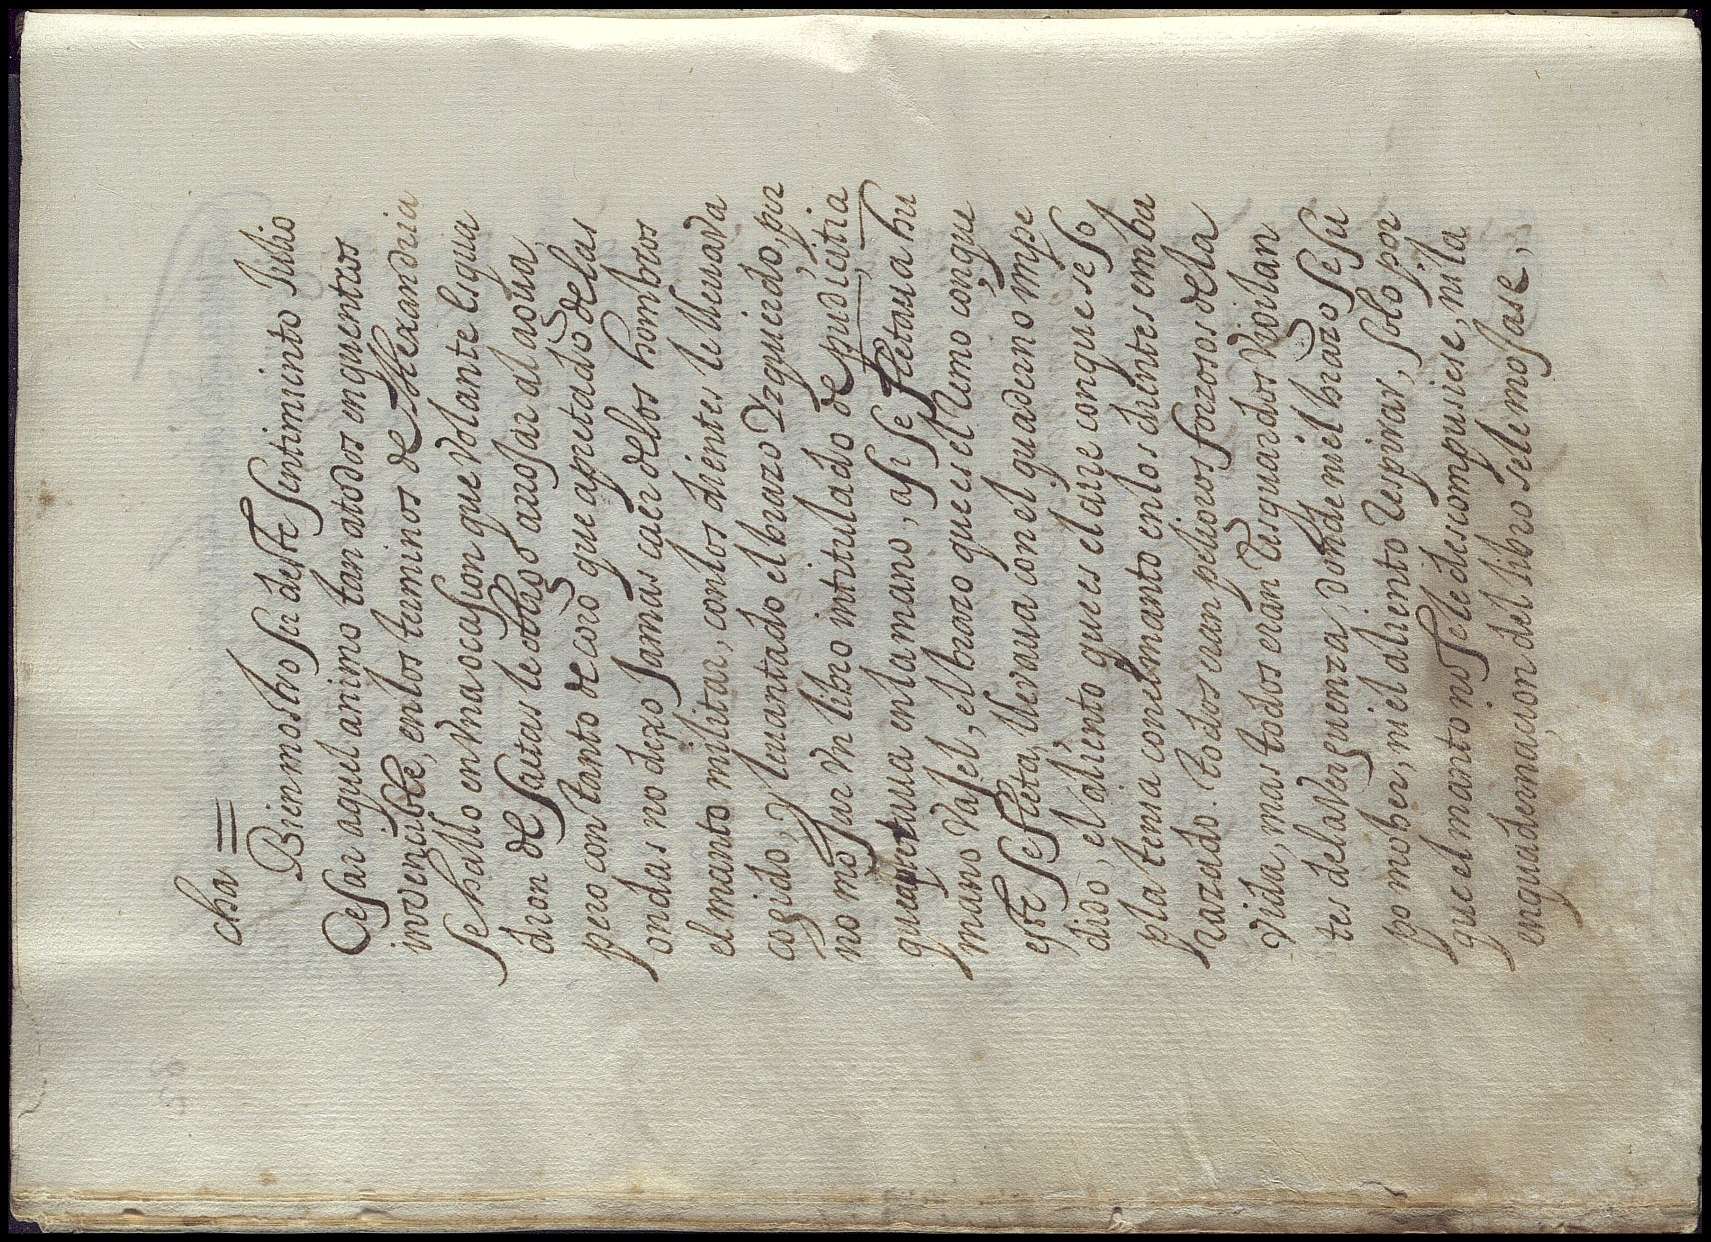 cha =
Bien mostro su deste sentimiento Julio
Cesar aquel animo tan a todos enquentros
invencible, en los terminos de Alexandria
se hallo en vna occasion que volante esqua
dron de saetas le obligo arrojar al agua,
pero con tanto decoro que apretado de las
ondas no dexo jamas caer de los hombros
el manto militar, con los dientes le lleuaua
cogido, y leuantado el brazo Yzquierdo, por
no mojar vn libro intitulado de pudicitia,
que apretaua en la mano, assi se fletaua hu
mano vasel, el brazo que es el remo con que
este se fleta, lleuaua con el quaderno impe
dido, el aliento que es el aire con que se so
pla tenia con el manto en los dientes emba
razado. todos eran peligros forzosos de la
vida, mas todos eran resguardos vigilan
tes de la verguenza, donde ni el brazo se su
po mober, ni el aliento respirar, solo por
que el manto no se le descompusiese, ni la
enquadernacion del libro se le mojase,